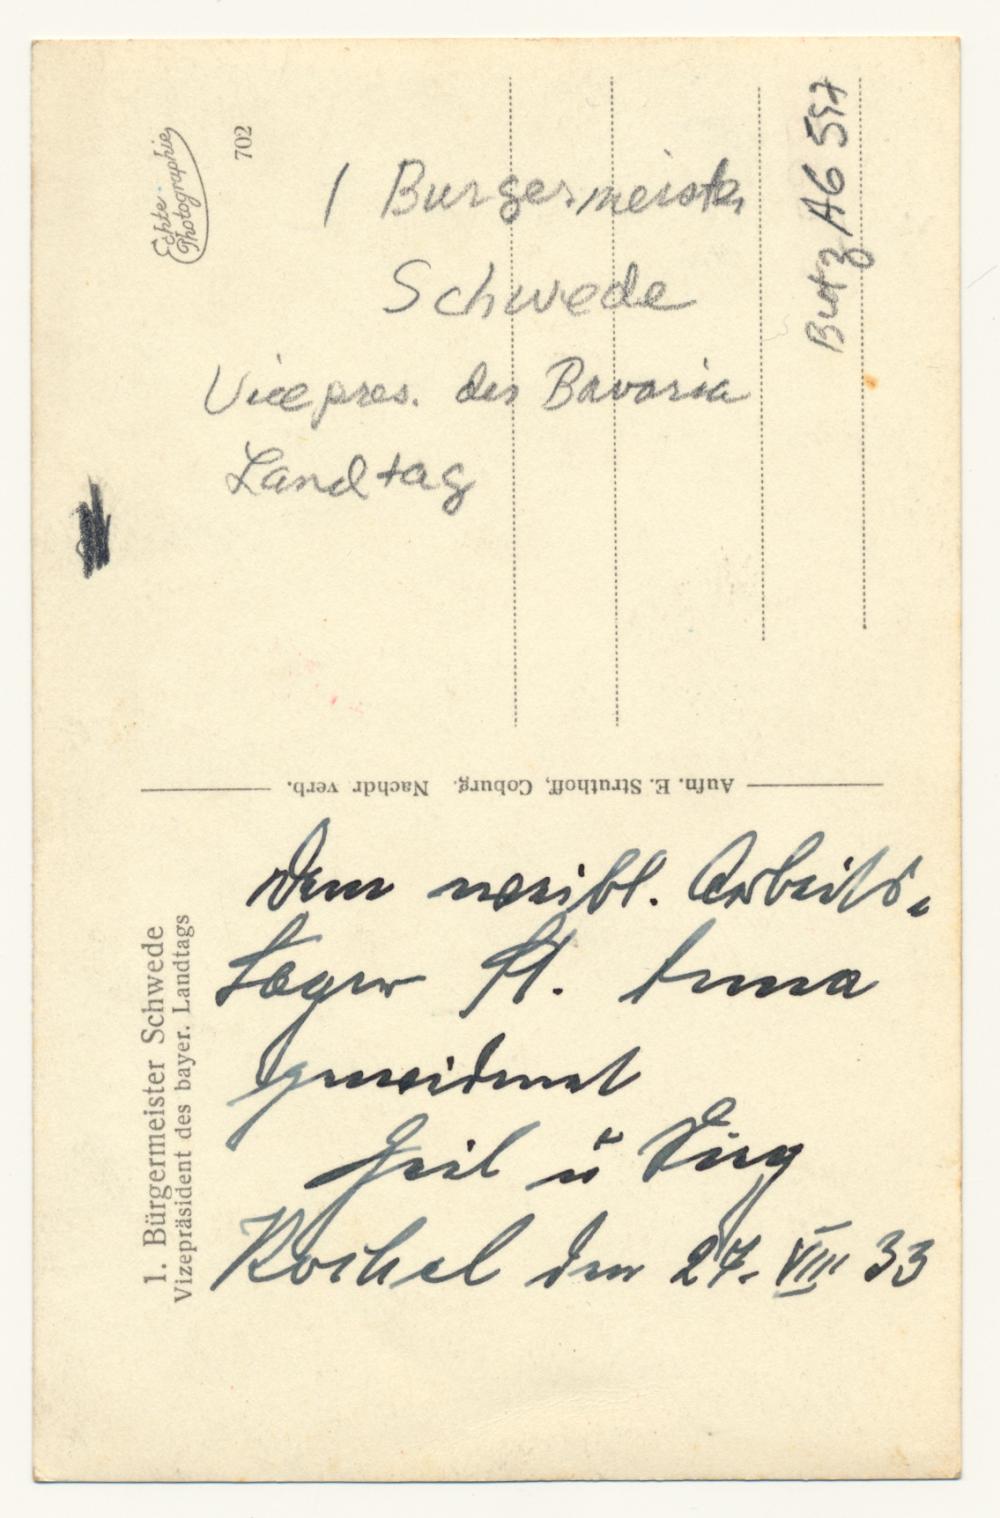 Echte
Photographie
702
1 Burgermeister
Schwede
Vicepres. des Bavaria
Landtag
Butz A6 557
Aufn. E. Struthoff, Coburg. Nachdr verb.
1. Bürgermeister Schwede
Vizepräsident des bayer. Landtags
Dem weibl. Arbeits-
Lager St. Anna
gewidmet
Heil u Sieg
Kochel den 27. VIII 33